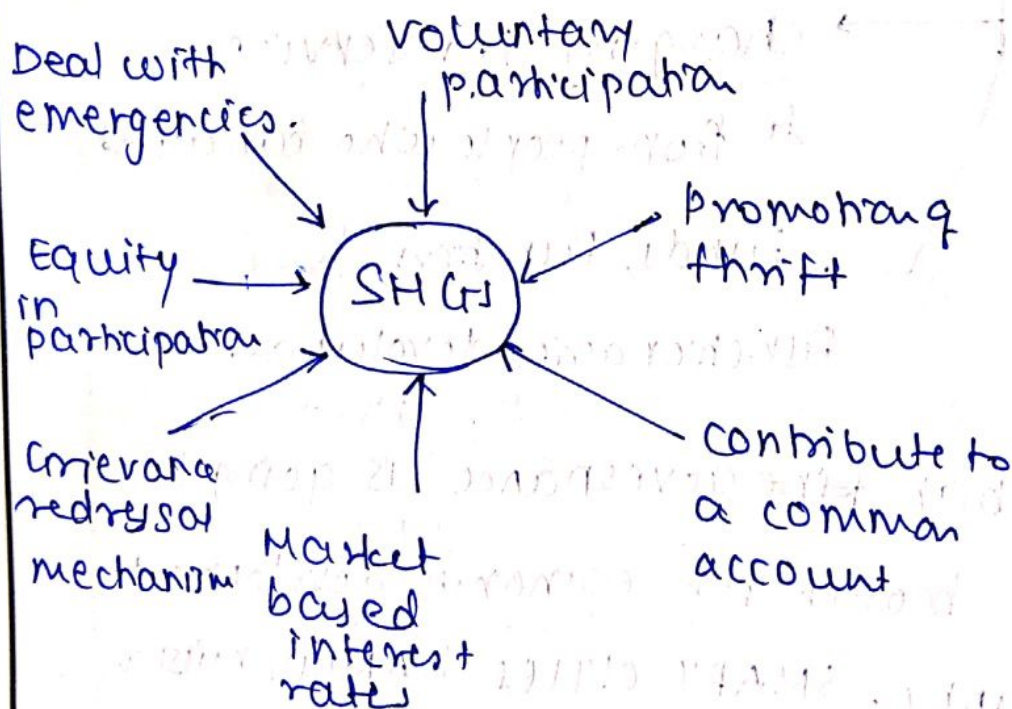 Deal with
emergencies.
voluntary
participation
Equity
in
participation
SHGs
Promotion of
thrift
Grievance
redressal
mechanism
Market
based
interest
rates
contribute to
a common
account